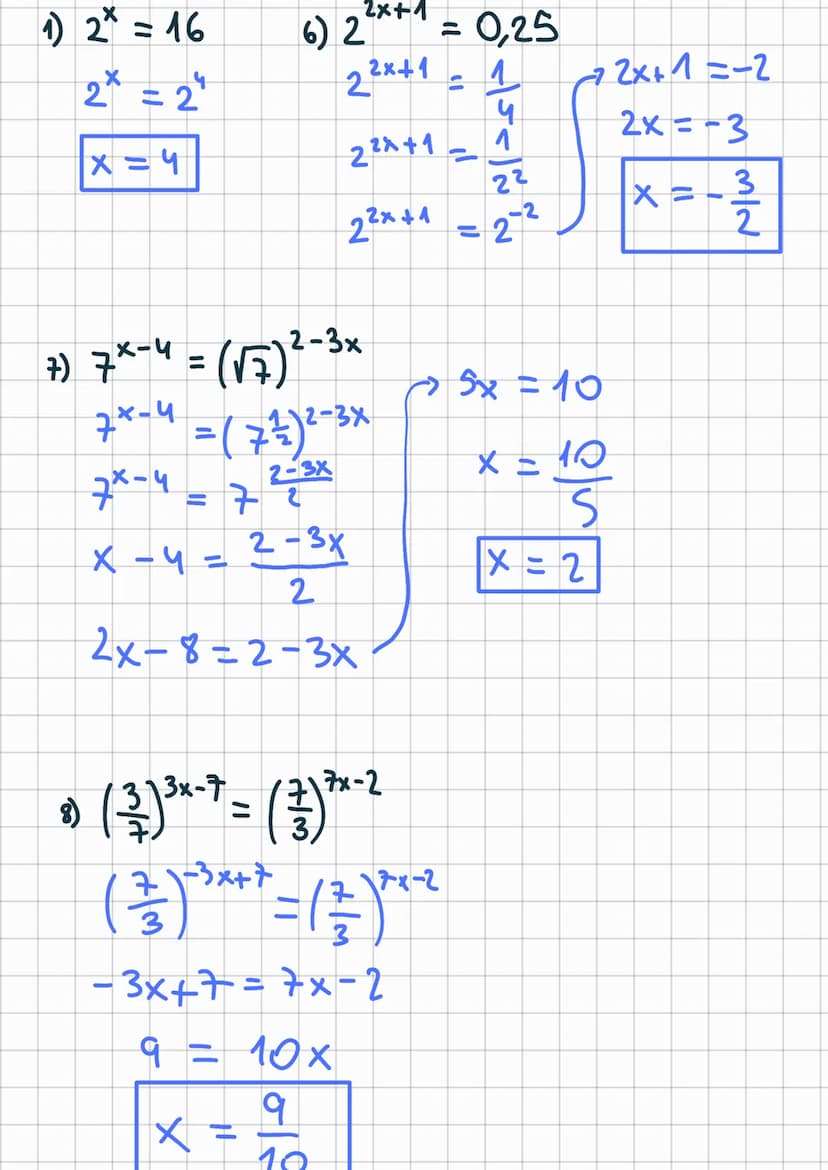 1) 2^x = 16
2^x = 2^4
x = 4
6) 2^(2x+1) = 0,25
2^(2x+1) = 1/4
2^(2x+1) = 1/2^2
2^(2x+1) = 2^(-2)
→ 2x+1 = -2
2x = -3
x = -3/2
7) 7^(x-4) = (√7)^(2-3x)
7^(x-4) = (7^(1/2))^(2-3x)
7^(x-4) = 7^((2-3x)/2)
x - 4 = (2-3x)/2
2x - 8 = 2 - 3x
→ 5x = 10
x = 10/5
x = 2
8) (3/7)^(3x-7) = (7/3)^(7x-2)
(7/3)^(-3x+7) = (7/3)^(7x-2)
-3x+7 = 7x-2
9 = 10x
x = 9/10